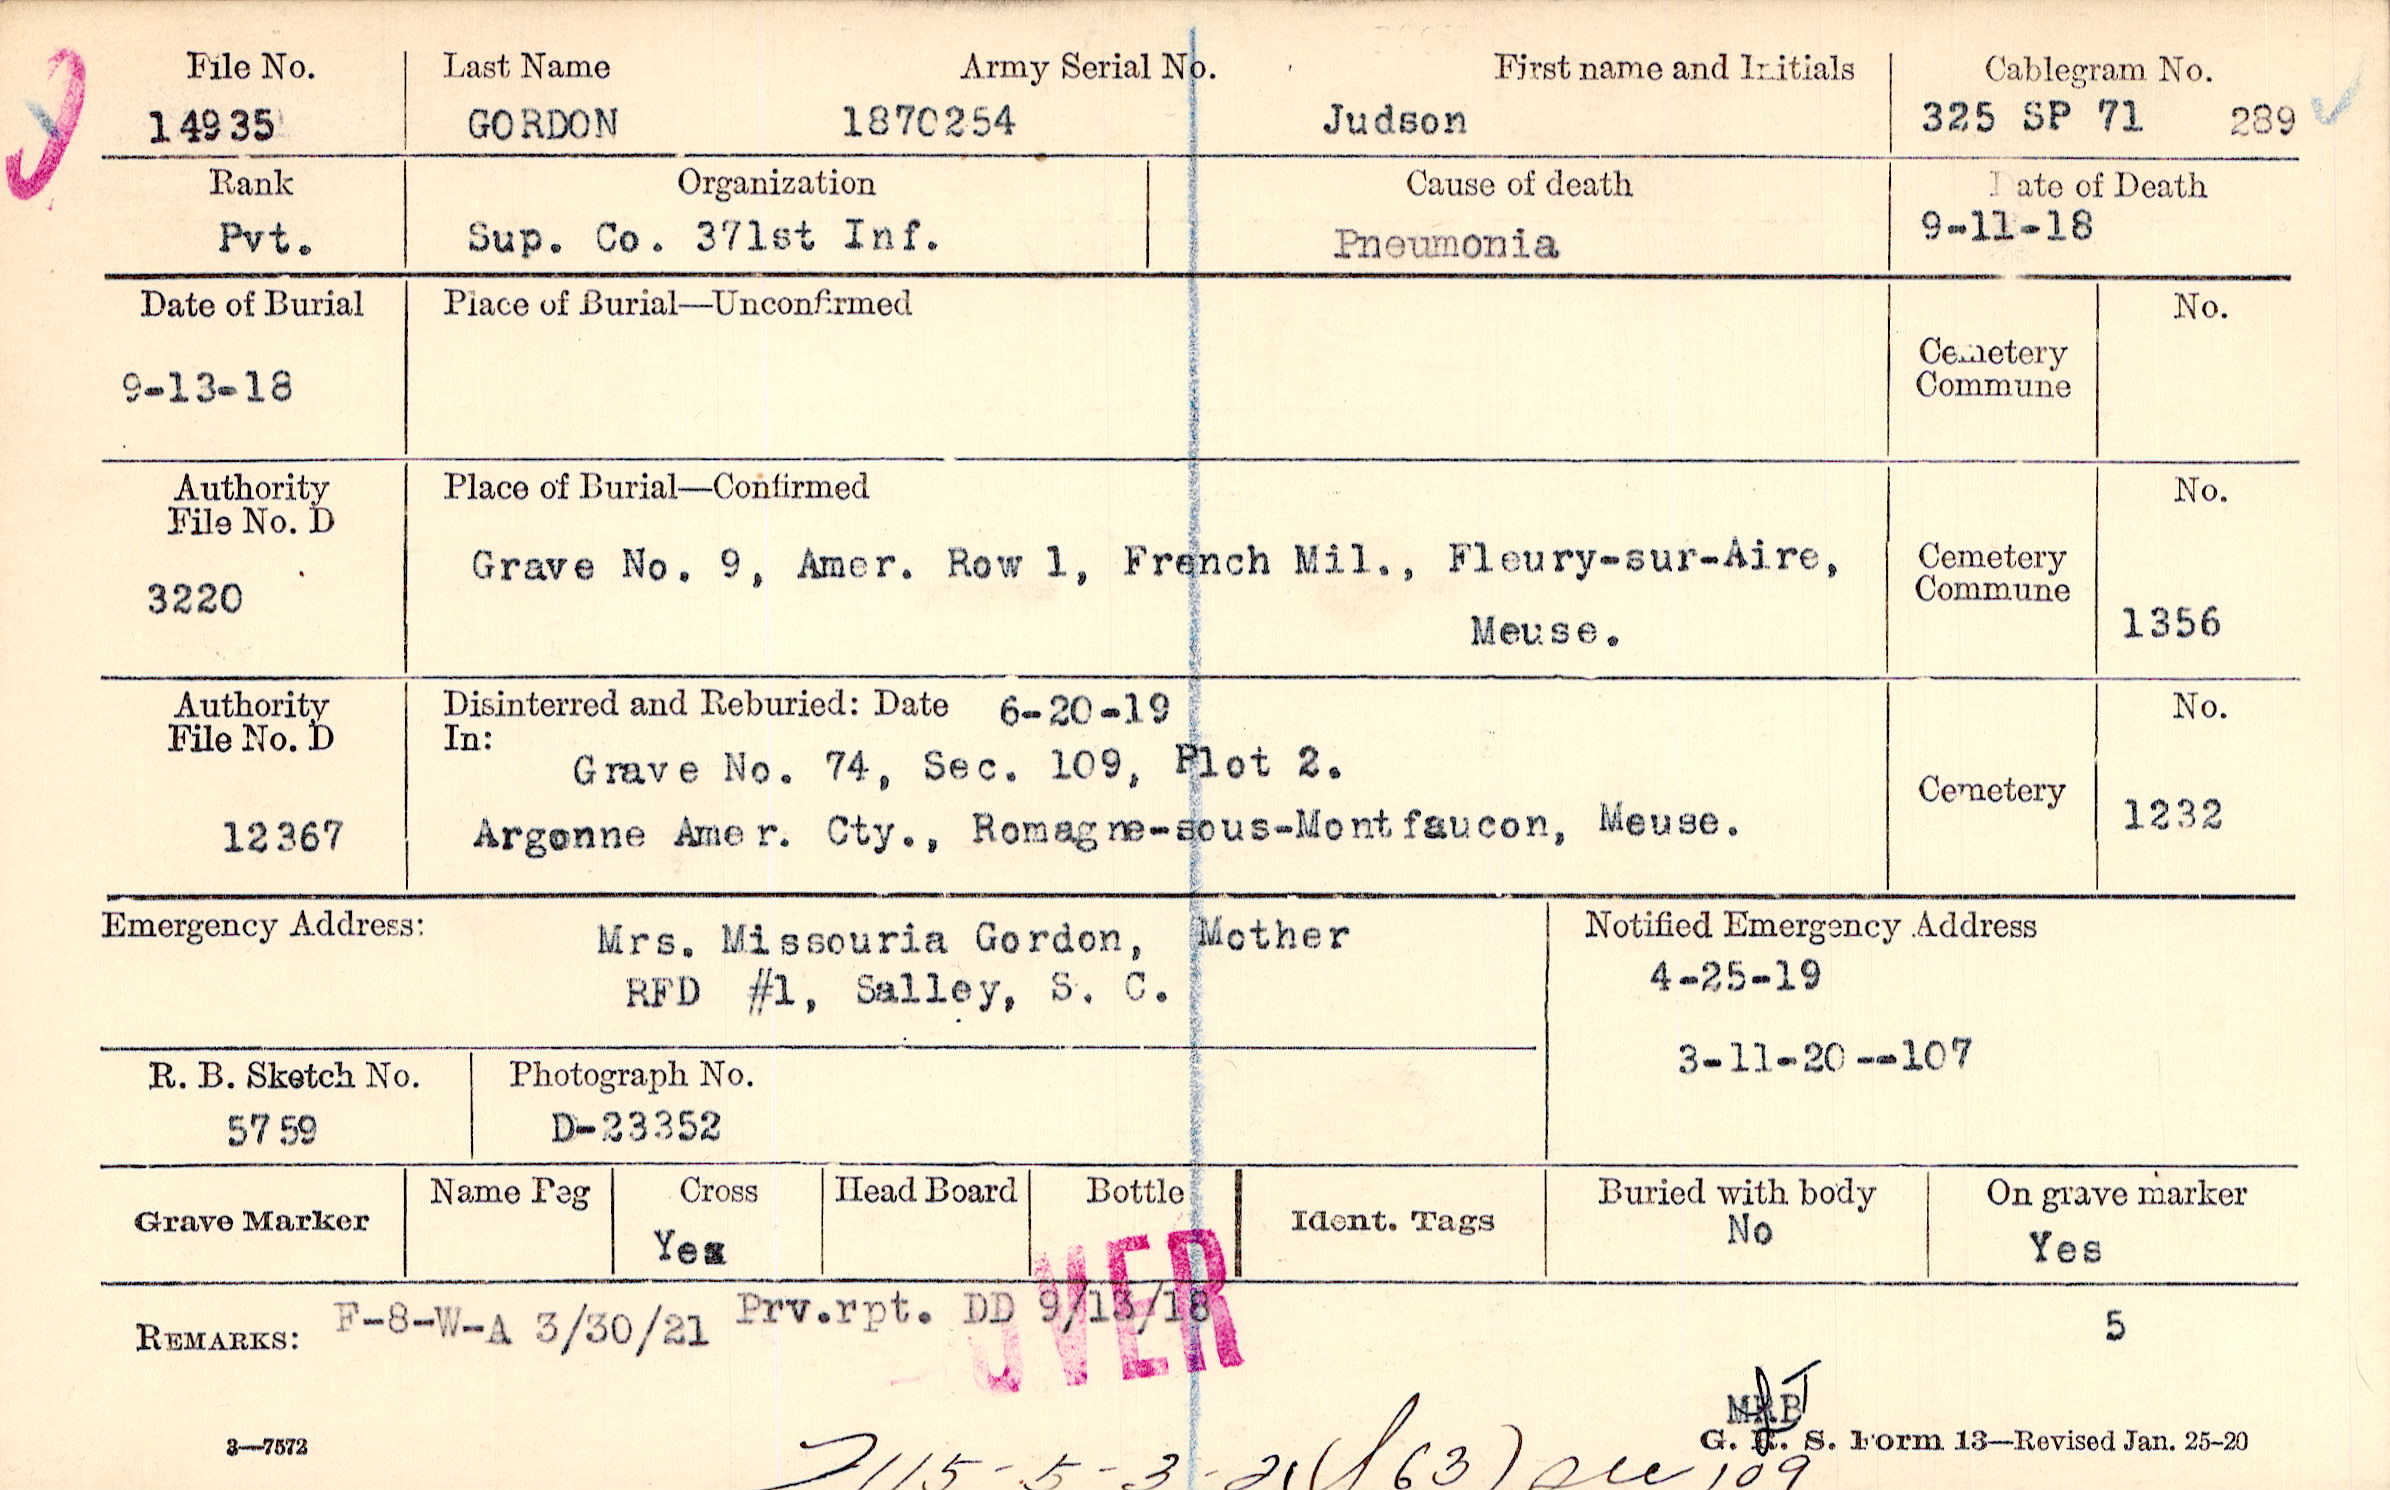 File No. Last Name Army Serial No. First name and Initials Cablegram No.
14935 GORDON 1870254 Judson 325 SP 71 289
Rank Organization Cause of death Date of Death
Pvt. Sup. Co. 371st Inf. Pneumonia 9-11-18
Date of Burial Place of Burial—Unconfirmed No.
Cemetery
Commune
9-13-18
Authority Place of Burial—Confirmed No.
File No. D
Grave No. 9, Amer. Row 1, French Mil., Fleury-sur-Aire, Cemetery
Commune
3220 Meuse. 1356
Authority Disinterred and Reburied: Date 6-20-19 No.
File No. D In:
Grave No. 74, Sec. 109, Plot 2.
Cemetery
12367 Argonne Amer. Cty., Romagne-sous-Montfaucon, Meuse. 1232
Emergency Address: Mrs. Missouria Gordon, Mother Notified Emergency Address
RFD #1, Salley, S. C. 4-25-19
3-11-20--107
R. B. Sketch No. Photograph No.
5759 D-23352
Grave Marker Name Peg Cross Head Board Bottle Ident. Tags Buried with body On grave marker
Yes No Yes
OVER
REMARKS: F-8-W-A 3/30/21 Prv.rpt. DD 9/13/18 5
3—7572 G. R. S. Form 13—Revised Jan. 25-20
115-5-3-21 63) 109